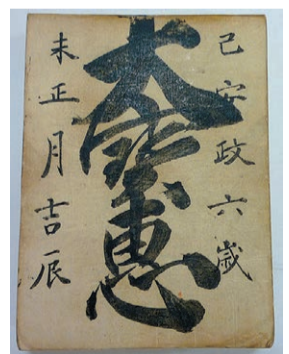 己安政六歳
大宝恵
未正月吉辰